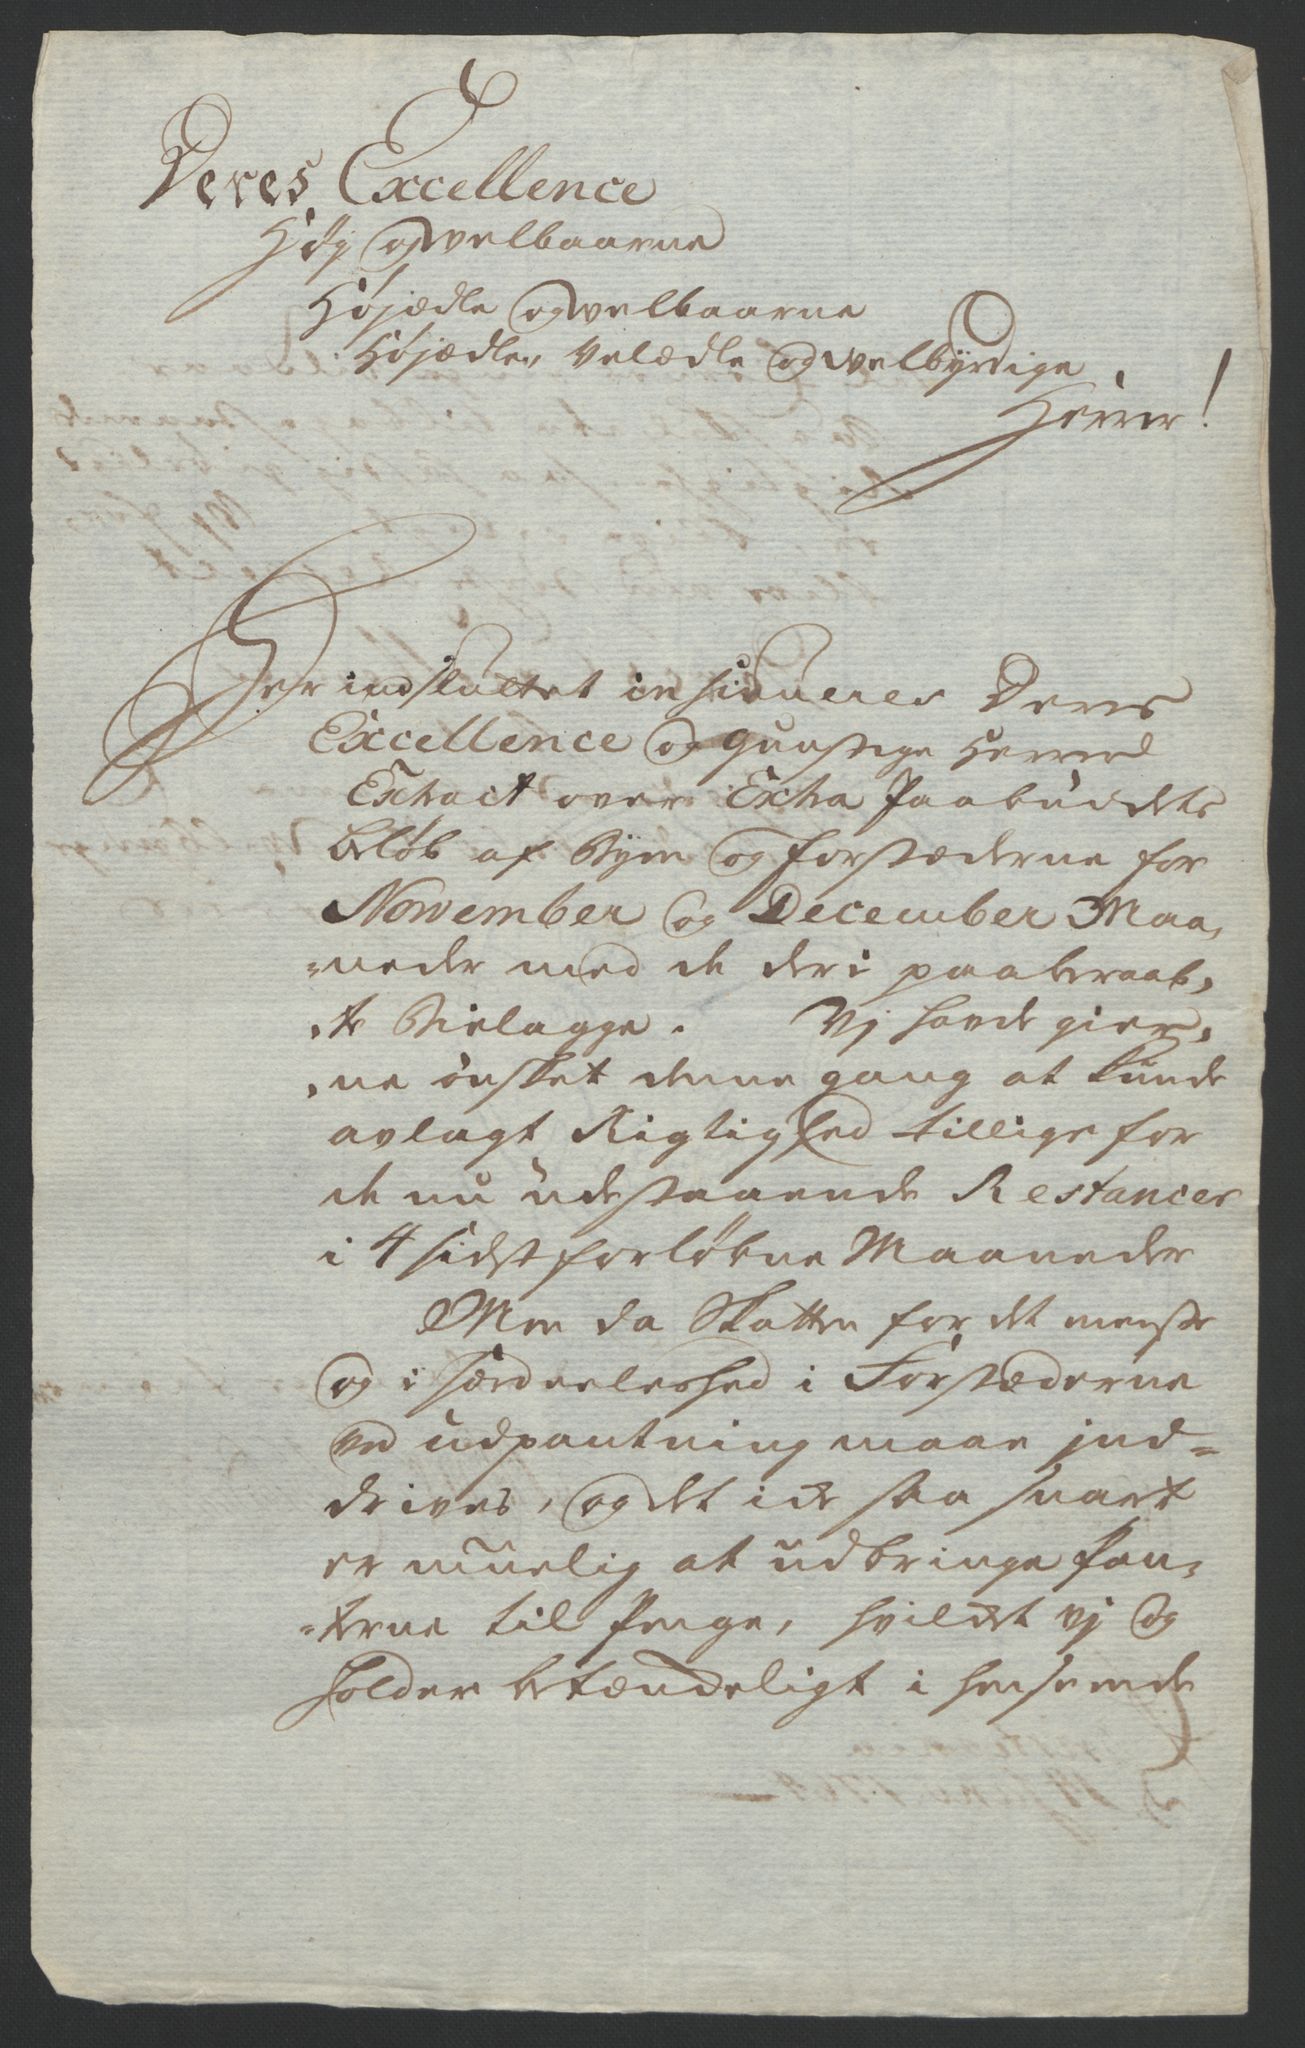 Deres Excellence
Høy og velbaarne
Højædle og velbaarne
Højædle, Velædle og velbyrdige
Herrer!
Her indsluttet insinueres Deres
Excellence og gunstige Herrer
Extract over Extra Paabuddets
beløb af Byen og forstæderne for
November og December Maa,
-neder med de deri paaberaab,
,te Bielagge. Vj havde gier,
,ne ønsket denne gang at kunde
avlagt Rigtighed tillige for
de nu udestaaende Restancer
i 4 sidst forløbne Maaneder
Men da Skatten for det meeste
og i særdeeleshed i Forstæderne
ved udpantning maae jnd=
drives, og det icke saa snart
er muelig at udbringe Pan,
-terne til Penge, hvilcket vj og
holder betændeligt i henseende